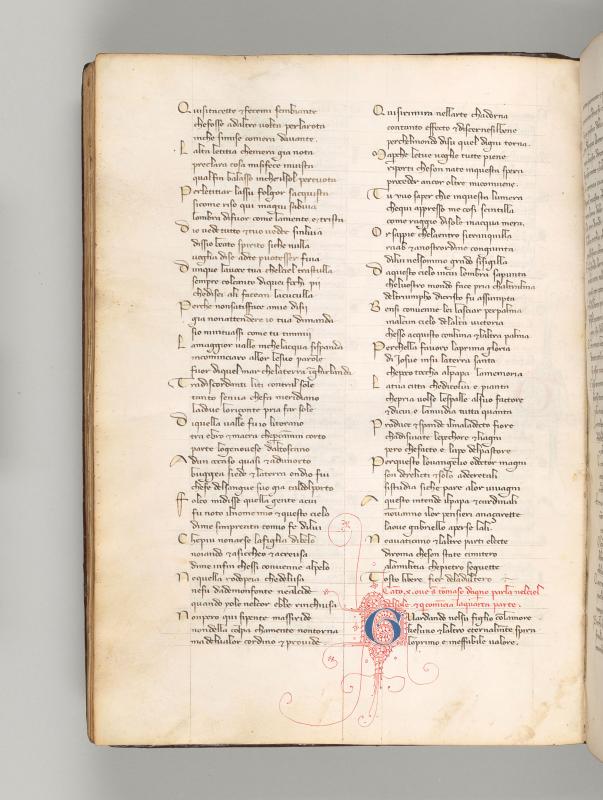 Quisitacette & fecemi sembiante
chefosse adaltre volta perlarota
inche simise comera davante.
Laltra letitia chemera gia nota
preclara cosa misifece invista
qualfin balasso incheilsol percuota
Perletitiar lassu folgor sacquista
sicome riso qui magiu sabuia
lombra difuor come lamente e trista
Dio vedetutto & tuo veder sinluia
dissio beato spirito siche nulla
voglia dise adte puotesser fuia
Dunque lavoce tua chelciel trastulla
sempre colcanto diquei fochi pii
chedisei ali faceam lacuculla
Perche nonsatisface amie disii
gia nonattendere io tua dimanda
sio mintuassi come tu timmii
Lamaggior valle inchelacqua sispanda
incominciaro allor lesue parole
fuor diquel mar chelaterra inghirlanda
Tradiscordanti liti contral sole
tanto senva chefa meridiano
ladove lorizonte pria far sole
Diquella valle fuio litorano
tra ebro & macra chepcamin corto
parte logenovese daltoscano
Adun occaso quasi & adunorto
buggea siede & laterra ondio fui
chefe delsangue suo gia caldolporto
Folco midisse quella gente acui
fu noto ilnome mio & questo cielo
dime simprenta comio fe dilui
Chepiu nonarse lafiglia dibelo
noiando & asicheo & acreusa
dime infin chessi convenne alpelo
Nequella rodopeia chedelusa
nefu dademofonte nealcide
quando yole nelcor ebbe rinchiusa
Nonpero qui sipente massiride
nondella colpa chamente nontorna
madelvalor cordino & provide
Quisirimira nellarte chadorna
cotanto effecto & discernesilbene
perchelmondo disu quel digiu torna.
Maperche letue voglie tutte piene
tiporti cheson nate inquesta spera
proceder ancor oltre miconviene.
Tu vuo saper chie inquesta lumera
chequi appresso me cosi scintilla
come raggio disole inacqua mera.
Or sappie chelaentro sitranquilla
raab & anostrordine congiunta
dilei nelsommo grado sisigilla
Daquesto cielo incui lombra sapunta
chelvostro mondo face pria chaltralma
deltriumpho dicristo fu assumpta
Bensi convenne lei lasciar perpalma
inalcun cielo delalta victoria
chesso acquisto conluna & laltra palma
Perchella favoro laprima gloria
di Iosue insu laterra santa
chepoco toccha alpapa lamemoria
Latua citta chedicolui e pianta
chepria volse lespalle alsuo factore
& dicui e lanvidia tutta quanta
Produce & spande ilmaladecto fiore
chadisviate lepechore & liagni
pero chefacto e lupo delpastore
Perquesto lovangelio edoctor magni
son derelicti & solo adecretali
sistudia siche pare alor vivagni
Aquesto intende ilpapa & cardinali
nonvanno ilor pensieri anazarette
laove gabriello aperse lali.
Mavaticano & laltre parti elette
diroma cheson state cimitero
alamilitia chepietro seguette
Tosto libere fier deladultero
Cato .x. ove .s. tomaso daqno parla nelciel
disole & qcomicia laquarta parte.
Guardando nelsuo figlio colamore
cheluno & laltro eternalmente spira
loprimo & ineffabile valore.